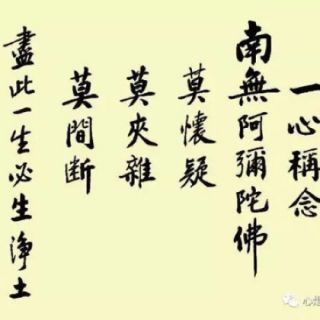 一心稱念
南無阿彌陀佛
莫懷疑
莫夾雜
莫間斷
盡此一生必生淨土